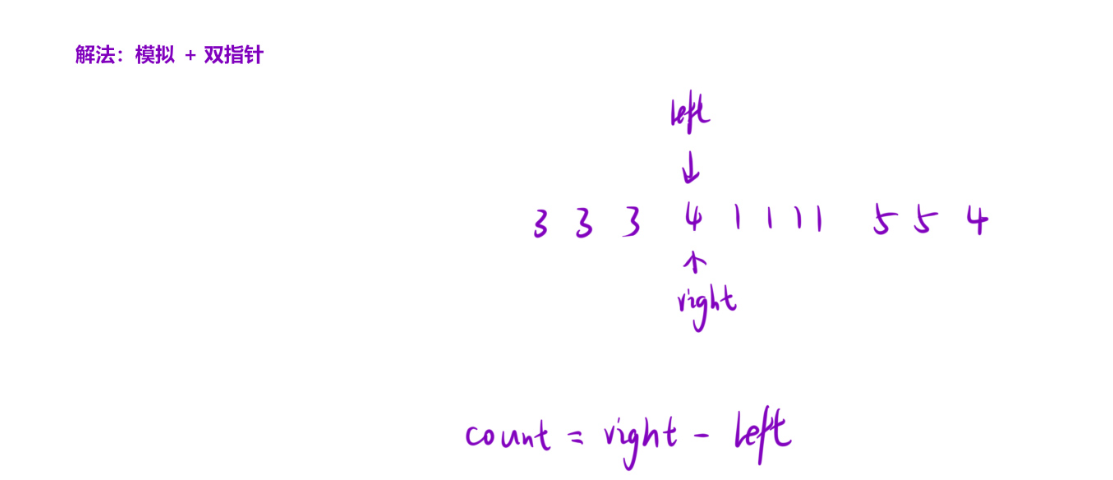 解法：模拟 + 双指针
left
3 3 3 4 1 1 1 1 5 5 4
right
count = right - left